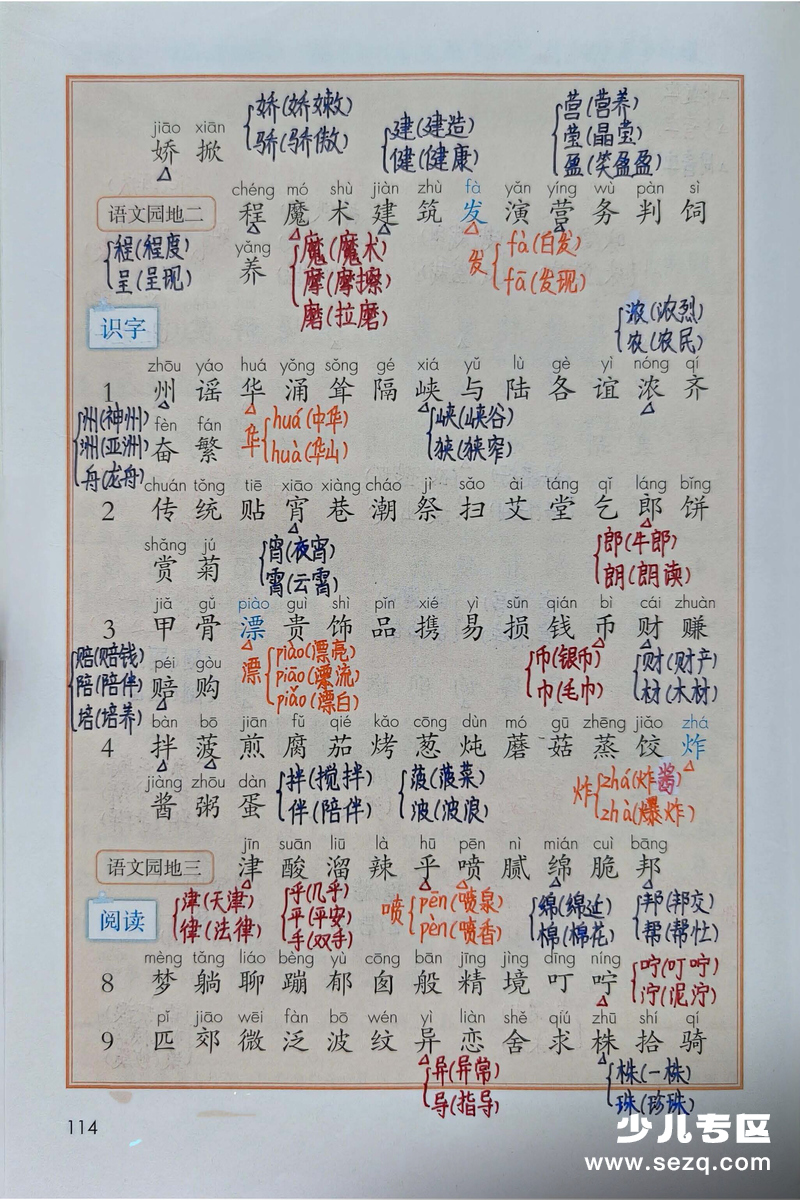 娇(娇嫩)
骄(骄傲)
建(建造)
健(健康)
营(营养)
莹(晶莹)
盈(笑盈盈)
jiāo xiān
娇 掀
chéng mó shù jiàn zhù fà yǎn yíng wù pàn sì
语文园地二 程 魔 术 建 筑 发 演 营 务 判 饲
yǎng
养
程(程度)
呈(呈现)
魔(魔术)
摩(摩擦)
磨(拉磨)
发 fà(白发)
fā(发现)
浓(浓烈)
农(农民)
识字
zhōu yáo huá yǒng sǒng gé xiá yǔ lù gè yì nóng qí
1 州 谣 华 涌 耸 隔 峡 与 陆 各 谊 浓 齐
fèn fán
奋 繁
州(神州)
洲(亚洲)
舟(龙舟)
华 huá(中华)
huà(华山)
峡(峡谷)
狭(狭窄)
chuán tǒng tiē xiāo xiàng cháo jì sǎo ài táng qǐ láng bǐng
2 传 统 贴 宵 巷 潮 祭 扫 艾 堂 乞 郎 饼
shǎng jú
赏 菊
宵(夜宵)
霄(云霄)
郎(牛郎)
朗(朗读)
jiǎ gǔ piào guì shì pǐn xié yì sǔn qián bì cái zhuàn
3 甲 骨 漂 贵 饰 品 携 易 损 钱 币 财 赚
péi gòu
赔 购
赔(赔钱)
陪(陪伴)
培(培养)
漂 piào(漂亮)
piāo(漂流)
piǎo(漂白)
币(银币)
巾(毛巾)
财(财产)
材(木材)
bàn bō jiān fǔ qié kǎo cōng dùn mó gū zhēng jiǎo zhá
4 拌 菠 煎 腐 茄 烤 葱 炖 蘑 菇 蒸 饺 炸
jiàng zhōu dàn
酱 粥 蛋
拌(搅拌)
伴(陪伴)
菠(菠菜)
波(波浪)
炸 zhá(炸酱)
zhà(爆炸)
jīn suān liū là hū pēn nì mián cuì bāng
语文园地三 津 酸 溜 辣 乎 喷 腻 绵 脆 邦
阅读
津(天津)
律(法律)
乎(几乎)
平(平安)
手(双手)
喷 pēn(喷泉)
pèn(喷香)
绵(绵延)
棉(棉花)
邦(邦交)
帮(帮忙)
mèng tǎng liáo bèng yù cōng bān jīng jìng dīng níng
8 梦 躺 聊 蹦 郁 囱 般 精 境 叮 咛
咛(叮咛)
泞(泥泞)
pǐ jiāo wēi fàn bō wén yì liàn shě qiú zhū shí qí
9 匹 郊 微 泛 波 纹 异 恋 舍 求 株 拾 骑
异(异常)
导(指导)
株(一株)
珠(珍珠)
114
少儿专区
www.sezq.com